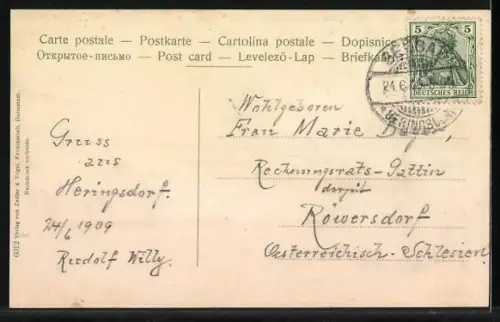 Carte postale — Postkarte — Cartolina postale — Dopisnice
Открытое-письмо — Post card — Levelező-Lap — Briefka
5 5
DEUTSCHES REICH
SEEBAD
24.6
HERINGSD
Wohlgeboren
Frau Marie
Rechnungsrats-Gattin
derzeit
Röwersdorf
Oesterreichisch-Schlesien
Gruss
aus
Heringsdorf.
24/6 1909
Rudolf Willy.
6012 Verlag von Zedler & Vogel, Kunstanstalt, Darmstadt.
Nachdruck verboten.